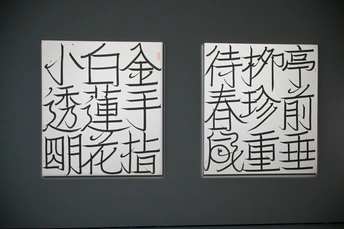 亭前垂
柳珍重
待春風
金手指
白蓮花
小透明